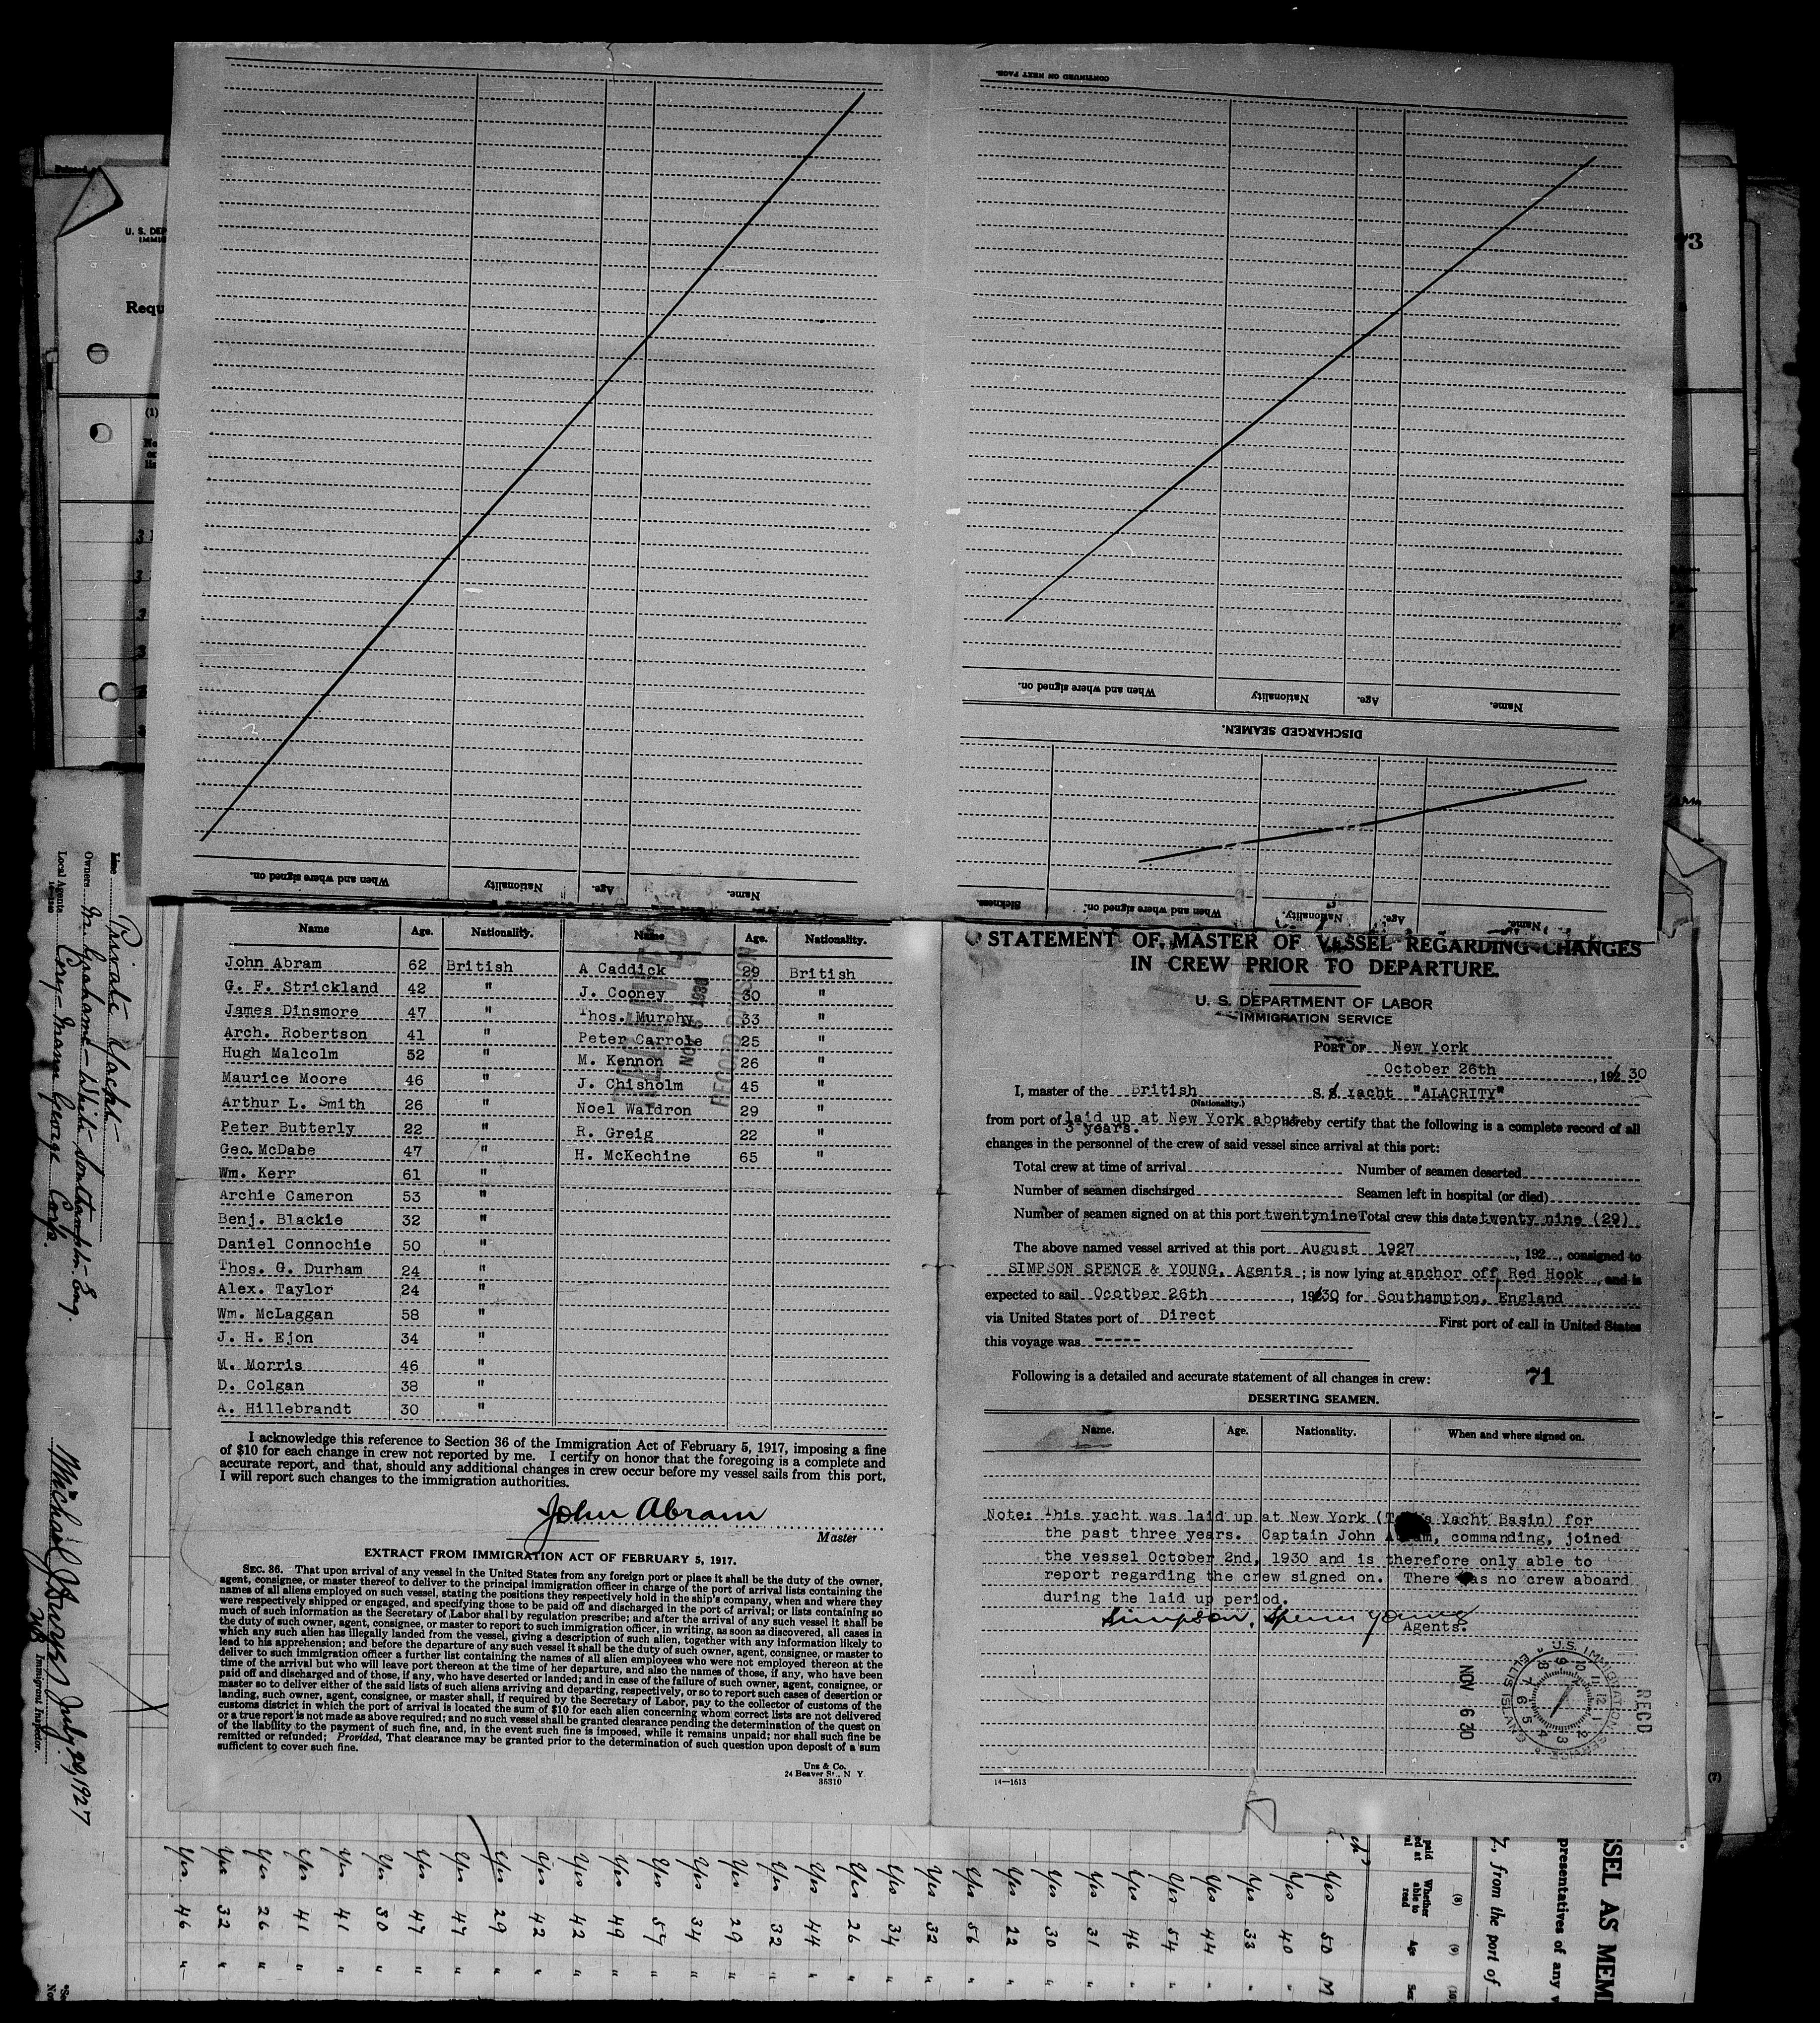 CONTINUED ON NEXT PAGE.
When and where signed on.
Nationality
Age.
Name.
DISCHARGED SEAMEN.
Sickness.
When and where signed on.
Nationality.
Age.
Name.
When and where signed on.
Nationality
Age.
Name.
Name Age. Nationality. Name Age. Nationality.
John Abram 62 British A Caddick 29 British
G. F. Strickland 42 " J. Cooney 30 "
James Dinsmore 47 " Thos. Murphy 33 "
Arch. Robertson 41 " Peter Carrole 25 "
Hugh Malcolm 52 " M. Kennon 26 "
Maurice Moore 46 " J. Chisholm 45 "
Arthur L. Smith 26 " Noel Waldron 29 "
Peter Butterly 22 " R. Greig 22 "
Geo. McDabe 47 " H. McKechine 65 "
Wm. Kerr 61 "
Archie Cameron 53 "
Benj. Blackie 32 "
Daniel Connochie 50 "
Thos. G. Durham 24 "
Alex. Taylor 24 "
Wm. McLaggan 58 "
J. H. Ejon 34 "
M. Morris 46 "
D. Colgan 38 "
A. Hillebrandt 30 "
I acknowledge this reference to Section 36 of the Immigration Act of February 5, 1917, imposing a fine
of $10 for each change in crew not reported by me. I certify on honor that the foregoing is a complete and
accurate report, and that, should any additional changes in crew occur before my vessel sails from this port,
I will report such changes to the immigration authorities.
John Abram
Master
EXTRACT FROM IMMIGRATION ACT OF FEBRUARY 5, 1917.
SEC. 36. That upon arrival of any vessel in the United States from any foreign port or place it shall be the duty of the owner,
agent, consignee, or master thereof to deliver to the principal immigration officer in charge of the port of arrival lists containing the
names of all aliens employed on such vessel, stating the positions they respectively hold in the ship's company, when and where they
were respectively shipped or engaged, and specifying those to be paid off and discharged in the port of arrival; or lists containing so
much of such information as the Secretary of Labor shall by regulation prescribe; and after the arrival of any such vessel it shall be
the duty of such owner, agent, consignee, or master to report to such immigration officer, in writing, as soon as discovered, all cases in
which any such alien has illegally landed from the vessel, giving a description of such alien, together with any information likely to
lead to his apprehension; and before the departure of any such vessel it shall be the duty of such owner, agent, consignee, or master to
deliver to such immigration officer a further list containing the names of all alien employees who were not employed thereon at the
time of the arrival but who will leave port thereon at the time of her departure, and also the names of those, if any, who have been
paid off and discharged and of those, if any, who have deserted or landed; and in case of the failure of such owner, agent, consignee, or
master so to deliver either of the said lists of such aliens arriving and departing, respectively, or so to report such cases of desertion or
landing, such owner, agent, consignee, or master shall, if required by the Secretary of Labor, pay to the collector of customs of the
customs district in which the port of arrival is located the sum of $10 for each alien concerning whom correct lists are not delivered
or a true report is not made as above required; and no such vessel shall be granted clearance pending the determination of the quest on
of the liability to the payment of such fine, and, in the event such fine is imposed, while it remains unpaid; nor shall such fine be
remitted or refunded; Provided, That clearance may be granted prior to the determination of such question upon deposit of a sum
sufficient to cover such fine.
Unz & Co.
24 Beaver St., N. Y.
35310
NOV 6 1930
RECORD DIVISION
STATEMENT OF MASTER OF VESSEL REGARDING CHANGES
IN CREW PRIOR TO DEPARTURE.
U. S. DEPARTMENT OF LABOR
IMMIGRATION SERVICE
PORT OF New York
October 26th, 192 30
I, master of the British S.S. Yacht "ALACRITY"
(Nationality.)
from port of laid up at New York about hereby certify that the following is a complete record of all
3 years.
changes in the personnel of the crew of said vessel since arrival at this port:
Total crew at time of arrival Number of seamen deserted
Number of seamen discharged Seamen left in hospital (or died)
Number of seamen signed on at this port twentynine Total crew this date twenty nine (29)
The above named vessel arrived at this port August 1927, 192 , consigned to
SIMPSON SPENCE & YOUNG, Agents ; is now lying at anchor off Red Hook , and is
expected to sail Ocotber 26th , 19230, for Southampton, England
via United States port of Direct First port of call in United States
this voyage was -----
Following is a detailed and accurate statement of all changes in crew: 71
DESERTING SEAMEN.
Name. Age. Nationality. When and where signed on.
Note: This yacht was laid up at New York ( Yacht Basin) for
the past three years. Captain John commanding, joined
the vessel October 2nd, 1930 and is therefore only able to
report regarding the crew signed on. There was no crew aboard
during the laid up period.
Simpson, Spence Young
Agents.
RECD
U.S. IMMIGRATION SERVICE
ELLIS ISL. N.Y.
NOV 6 30
14—1613
Line Private Yacht
Owners M. Grahame-White Southampton. Eng.
Local Agents Cory-Mann George Corp.
July 29, 1927
Immigrant Inspector.
U. S. DEP
IMMIG
Requ
(1)
73
(7)
Yes 46 "
Yes 32
Yes 26 "
Yes 41 "
Yes 41 "
Yes 30 "
Yes 47 "
Yes 47 "
Yes 29 "
Yes 42 "
Yes 42 "
Yes 49 "
Yes 57 "
Yes 34 "
Yes 29 "
Yes 32 "
Yes 44 "
Yes 26 "
Yes 34 "
Yes 32 "
Yes 56 "
Yes 22 "
Yes 30 "
Yes 31 "
Yes 46 "
Yes 54 "
Yes 44 "
Yes 33 "
Yes 40 "
Yes 50 M
Whether able to read
(8)
Age
(9)
Sex
(10)
, from the port of
presentatives of any v
SSEL AS MEM